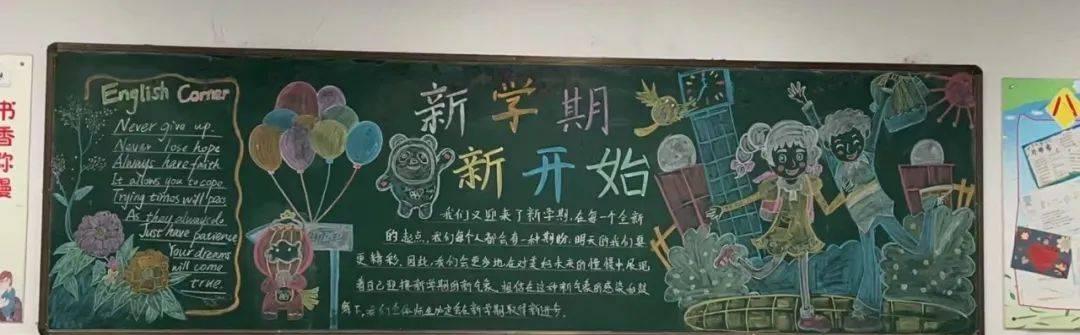 书香弥漫
English Corner
Never give up,
Never lose hope
Always have faith
It allows you to cope
Trying times will pass
As they always do
Just have patience
Your dreams
will come
true.
新学期
新开始
我们又迎来了新学期,在每一个全新
的起点,我们每个人都会有一种期盼,明天的我们真
更精彩,因此,我们会更多地在对美好未来的憧憬中展现
着自己迎接新学期的新气象,相信在这种新气象的感染和鼓
舞下,我们一定会在新学期取得新进步。
八